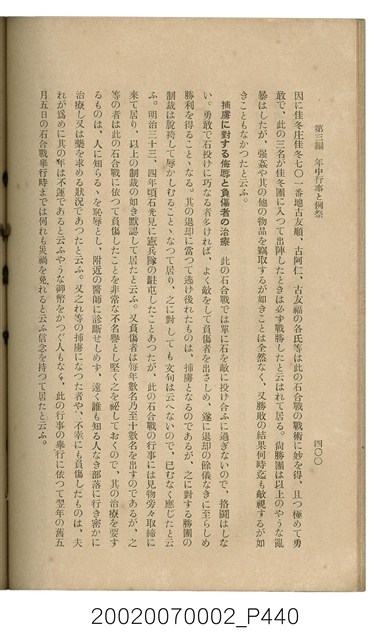 第三編　年中行事と例祭
四〇〇
因に佳冬庄佳冬七〇一番地古友順、古阿仁、古友福の各氏等は此の石合戰の戰術に妙を得、且つ極めて勇
敢で、此の三名が佳冬團に入つて出陣したときは必ず戰勝したと云はれて居る。尙勝團は以上のやうな亂
暴はしたが、强姦や其の他の物品を竊取するが如きことは全然なく、又勝敗の結果何時迄も敵視するが如
きこともなかつたと云ふ。
捕虜に對する侮辱と負傷者の治療　此の石合戰では單に石を敵に投げ合ふに過ぎないので、格鬪はしな
い。勇敢で石投けに巧なる者多ければ、よく敵をして負傷者を出さしめ、遂に退却の餘儀なきに至らしめ
勝利を得ることゝなる。其の退却に當つて逃け後れたものは、捕虜となるのであるが、之に對する勝團の
制裁は脫袴して辱かしむることゝなつて居り、之に對しても文句は云へないので、已むなく應じたと云
ふ。明治三十三、四年頃石光見に憲兵隊の駐屯したことあつたが、此の石合戰の行事には見物旁々取締に
來て居り、以上の制裁の如き默認して居たと云ふ。又負傷者は每年數名乃至十數名を出すのであるが、之
等の者は此の石合戰に依つて負傷したことを非常な不名譽とし堅く之を祕しておくので、其の治療を要す
るものは、人に知らるゝを恥辱とし、附近の醫師に診斷せしめず、遠く誰も知る人なき部落に行き密かに
治療し又は藥を求める狀況であつたと云ふ。又之れ等の捕虜になつた者や、不幸にも負傷したものは、夫
れが爲めに其の年は不運であると云ふやうな御幣をかつぐ人もなく、此の行事の擧行に依つて翌年の舊五
月五日の石合戰擧行時までは何れも災禍を免れると云ふ信念を持つて居たと云ふ。
20020070002_P440